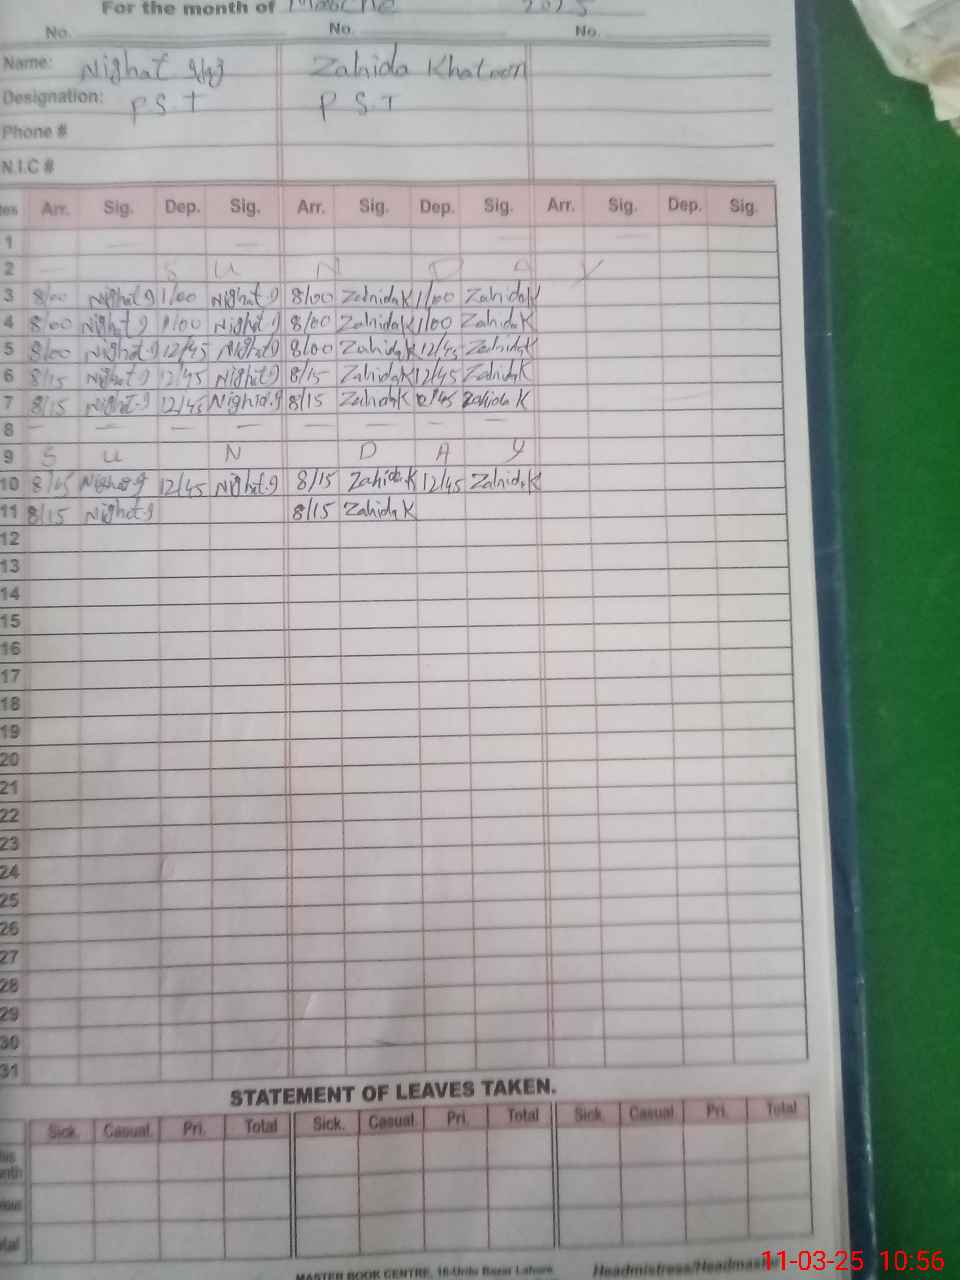 For the month of 2025
No. No. No.
Name: Nighat Zahida Khatoon
Designation: P S T P S T
Phone #
N.I.C #
tes Arr. Sig. Dep. Sig. Arr. Sig. Dep. Sig. Arr. Sig. Dep. Sig.
1 — — — —
2 — S U N D A Y
3 8/00 Nighat g 1/00 Nighat g 8/00 Zahida K 1/00 Zahida K
4 8/00 Nighat g 1/00 Nighat g 8/00 Zahida K 1/00 Zahida K
5 8/00 Nighat g 12/45 Nighat g 8/00 Zahida K 12/45 Zahida K
6 8/15 Nighat g 12/45 Nighat g 8/15 Zahida K 12/45 Zahida K
7 8/15 Nighat g 12/45 Nighat g 8/15 Zahida K 12/45 Zahida K
8 — — — — — — — —
9 S U N D A Y
10 8/15 Nighat g 12/45 Nighat g 8/15 Zahida K 12/45 Zahida K
11 8/15 Nighat g 8/15 Zahida K
12
13
14
15
16
17
18
19
20
21
22
23
24
25
26
27
28
29
30
31
STATEMENT OF LEAVES TAKEN.
Sick. Casual. Pri. Total Sick. Casual. Pri. Total Sick. Casual. Pri. Total
his
nth
ious
otal
MASTER BOOK CENTRE, 16-Urdu Bazar Lahore. Headmistress/Headmas
11-03-25 10:56